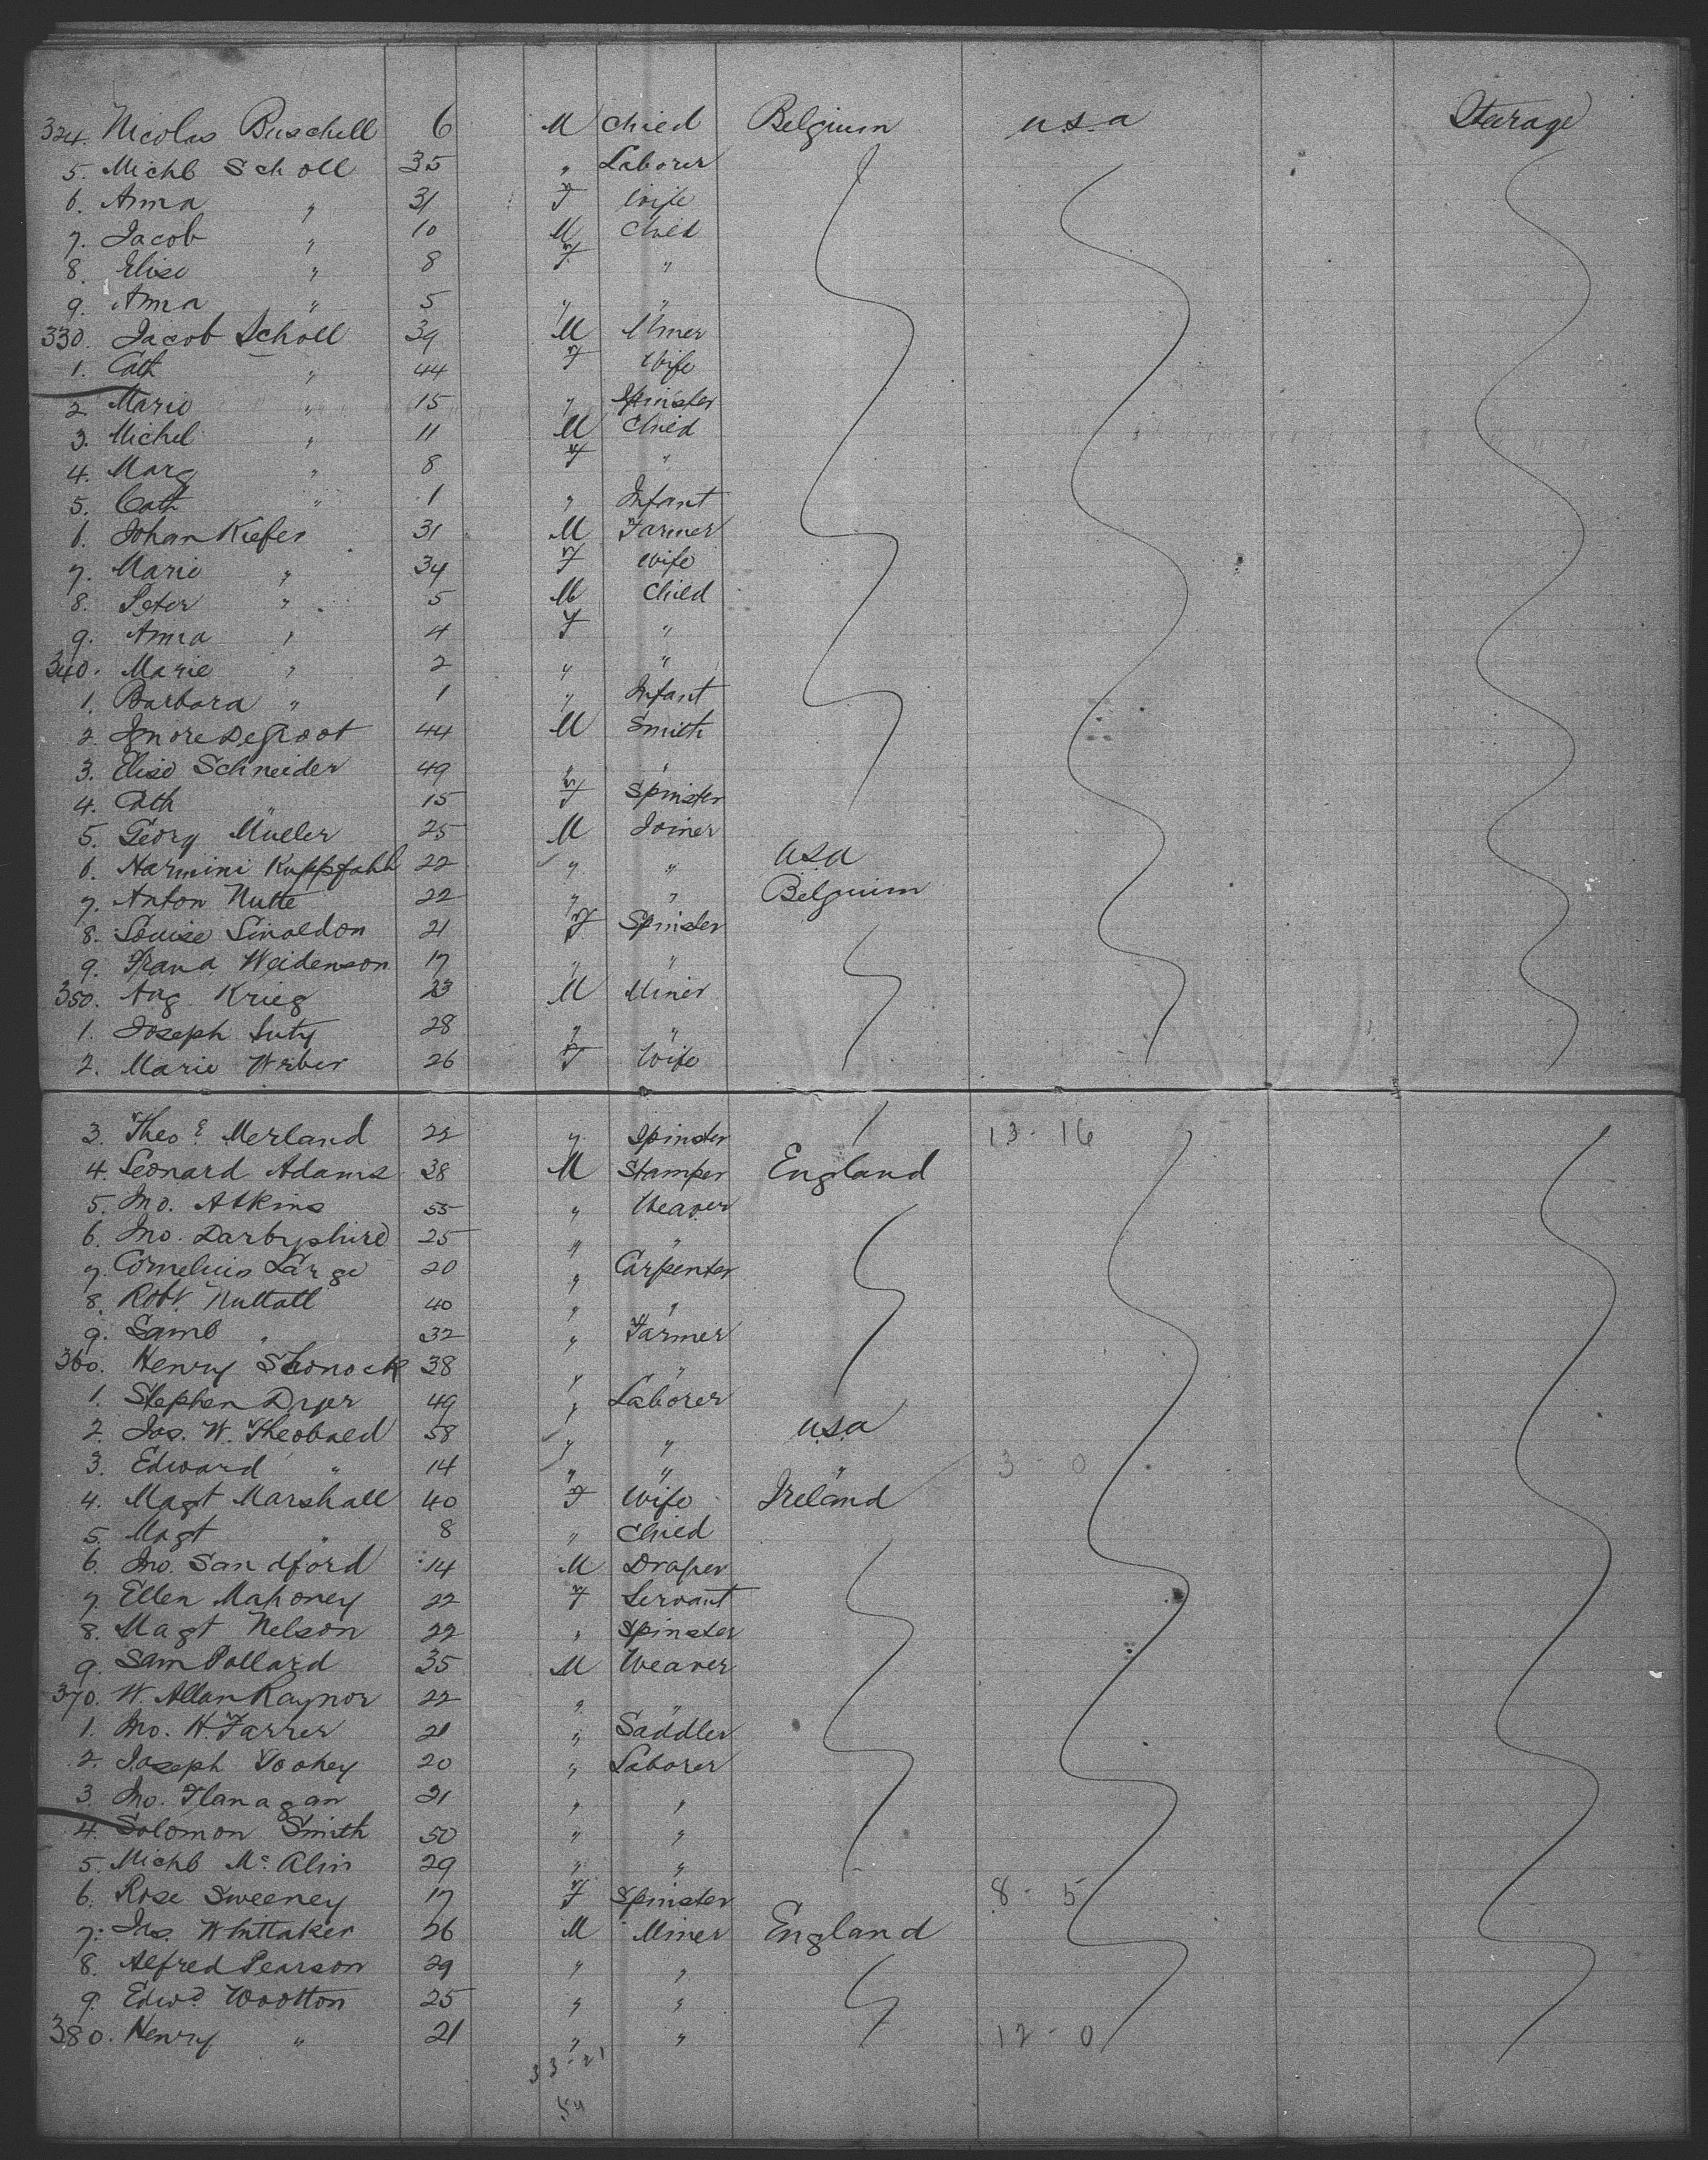 324. Nicolas Buschell 6 M Child Belgium U.S.A Steerage
5. Michl Scholl 35 " Laborer
6. Anna " 31 F Wife
7. Jacob " 10 M Child
8. Elise " 8 F "
9. Anna " 5 " "
330. Jacob Scholl 39 M Miner
1. Cath " 44 F Wife
2. Marie " 15 " Spinster
3. Michel " 11 M Child
4. Marg " 8 F "
5. Cath " 1 " Infant
6. Johan Kiefer 31 M Farmer
7. Marie " 34 F Wife
8. Peter " 5 M Child
9. Anna " 4 F "
340. Marie " 2 " "
1. Barbara " 1 " Infant
2. Degroot 44 M Smith
3. Elise Schneider 49 " "
4. Cath " 15 F Spinster
5. Georg Mueller 25 M Joiner
6. Harmini Kuppfahl 22 " " USA
7. Anton Nutte 22 " " Belgium
8. Louise Sinaldon 21 F Spinster
9. Weidenson 17 " "
350. Aug Krieg 23 M Miner
1. Joseph Suty 28 " "
2. Marie Weber 26 F Wife
3. Theoe Merland 22 " Spinster 13 - 16
4. Leonard Adams 38 M Stamper England
5. Jno. Atkins 55 " Weaver
6. Jno. Darbyshire 25 " "
7. Cornelius Large 20 " Carpenter
8. Robt. Nuttall 40 " "
9. Saml " 32 " Farmer
360. Henry Shonock 38 " "
1. Stephen Dyer 49 " Laborer
2. Jas. W. Theobald 58 " " U.S.A
3. Edward " 14 " " " 3 - 0
4. Magt Marshall 40 F Wife Ireland
5. Magt " 8 " Child
6. Jno. Sandford 14 M Draper
7. Ellen Mahoney 22 F Servant
8. Magt Nelson 22 " Spinster
9. Sam Pollard 35 M Weaver
370. W. Allan Raynor 22 " "
1. Jno. H. Farrer 21 " Saddler
2. Joseph Toohey 20 " Laborer
3. Jno. Flanagan 21 " "
4. Solomon Smith 50 " "
5. Michl Mc Alin 29 " "
6. Rose Sweeney 17 F Spinster 8 - 5
7. Jas. Whittaker 26 M Miner England
8. Alfred Pearson 29 " "
9. Edwd Wootton 25 " "
380. Henry " 21 " " 12 - 0
33 - 21
54